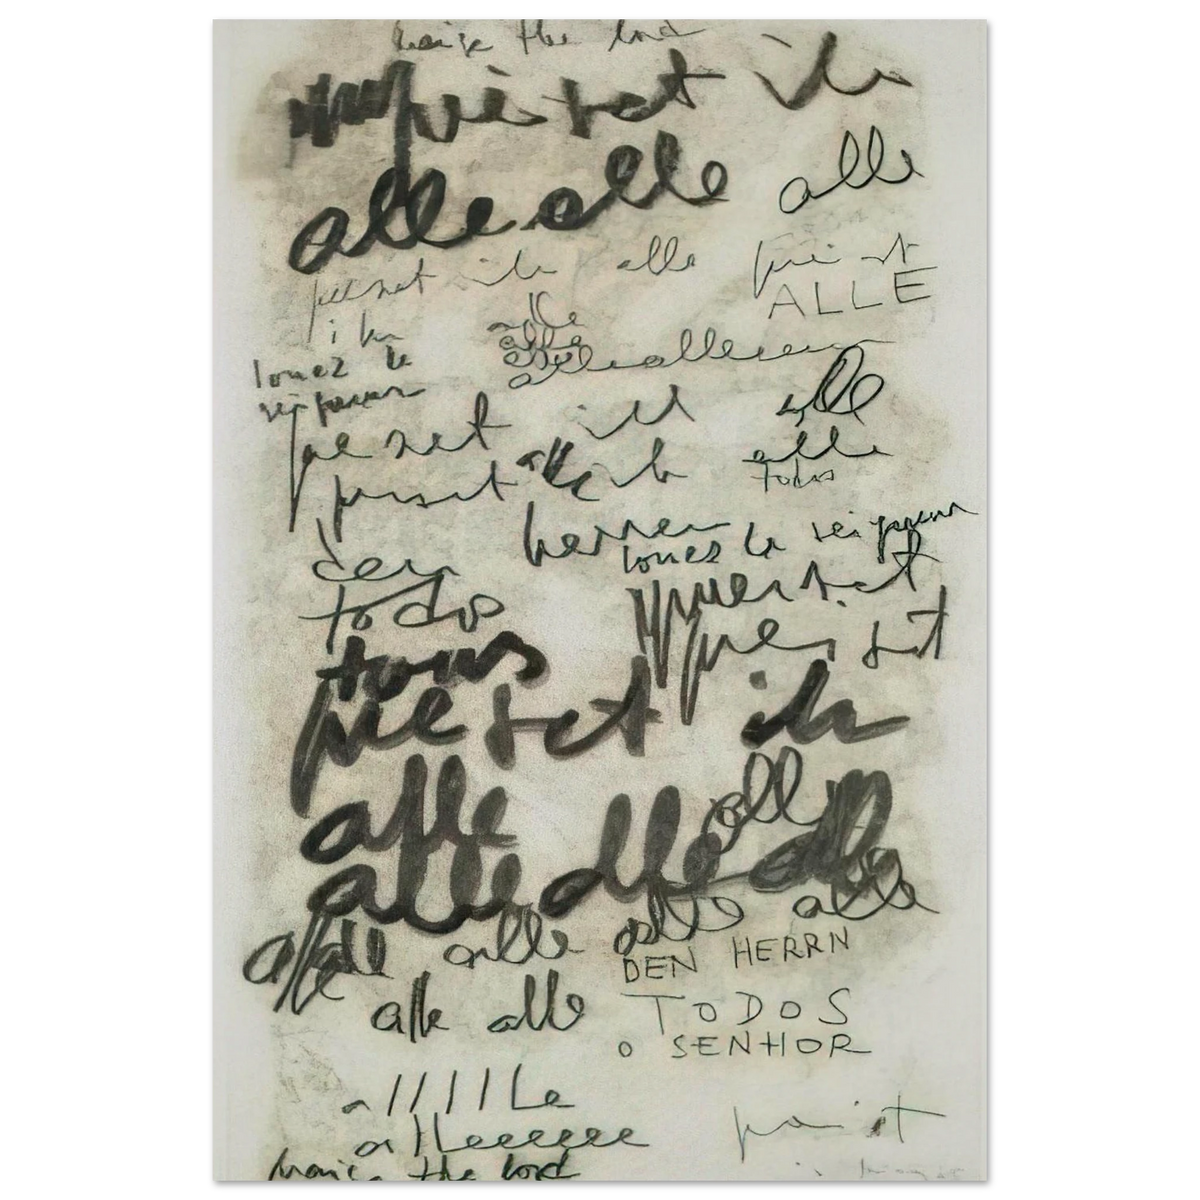 praise the lord
preiset ihn
alle alle alle
preiset ihn alle preiset
ALLE
ihn alle
louez le alle
alle alleeeeee
seigneur
preiset ihn alle
alle
preiset alle ihn Todos
herren louez le seigneur
den
preiset
todos
preiset
tous
preiset ihn
alle alle
alle alle alle
alle alle alle alle
DEN HERRN
alle alle TODOS
O SENHOR
allllle
preist
alleeeeeee
praise the lord